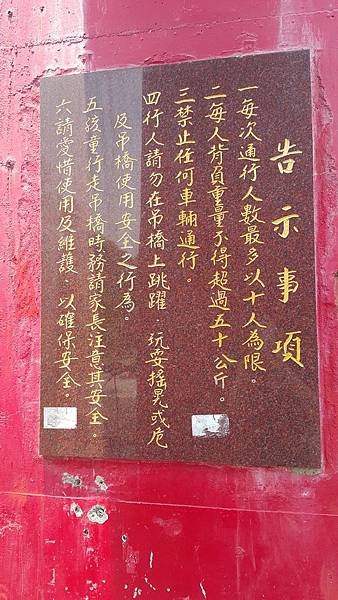 告示事項
一每次通行人數最多以十人為限。
二每人背負重量不得超過五十公斤。
三禁止任何車輛通行。
四行人請勿在吊橋上跳躍　玩耍搖晃或危
及吊橋使用安全之行為。
五孩童行走吊橋時務請家長注意其安全。
六請愛惜使用及維護、以確保安全。